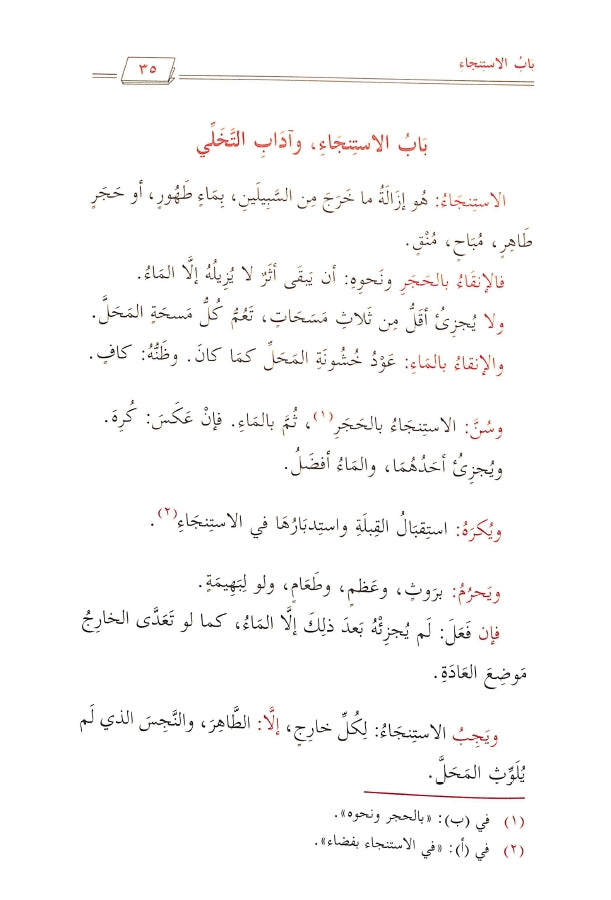 بابُ الاستِنجاءِ
٣٥
بَابُ الاستِنجَاءِ، وآدَابِ التَّخَلِّي
الاستِنجَاءُ: هُو إزَالَةُ ما خَرَجَ مِن السَّبِيلَينِ، بِمَاءٍ طَهُورٍ، أو حَجَرٍ
طَاهِرٍ، مُبَاحٍ، مُنْقٍ.
فالإنقَاءُ بالحَجَرِ ونَحوِهِ: أن يَبقَى أثَرٌ لا يُزِيلُهُ إلَّا المَاءُ.
ولا يُجزِئُ أقَلُّ مِن ثَلاثِ مَسَحَاتٍ، تَعُمُّ كُلُّ مَسحَةٍ المَحَلَّ.
والإنقاءُ بالمَاءِ: عَوْدُ خُشُونَةِ المَحَلِّ كمَا كانَ. وظَنُّهُ: كافٍ.
وسُنَّ: الاستِنجَاءُ بالحَجَرِ(١)، ثُمَّ بالمَاءِ. فإنْ عَكَسَ: كُرِهَ.
ويُجزِئُ أحَدُهُمَا، والمَاءُ أفضَلُ.
ويُكرَهُ: استِقبَالُ القِبلَةِ واستِدبَارُهَا في الاستِنجَاءِ(٢).
ويَحرُمُ: برَوثٍ، وعَظمٍ، وطَعَامٍ، ولو لِبَهِيمَةٍ.
فإن فَعَلَ: لَم يُجزِئْهُ بَعدَ ذلِكَ إلَّا المَاءُ، كما لو تَعَدَّى الخارِجُ
مَوضِعَ العَادَةِ.
ويَجِبُ الاستِنجَاءُ: لِكُلِّ خارِجٍ، إلَّا: الطَّاهِرَ، والنَّجِسَ الذي لَم
يُلَوِّثِ المَحَلَّ.
(١) في (ب): «بالحجر ونحوه».
(٢) في (أ): «في الاستنجاء بفضاء».